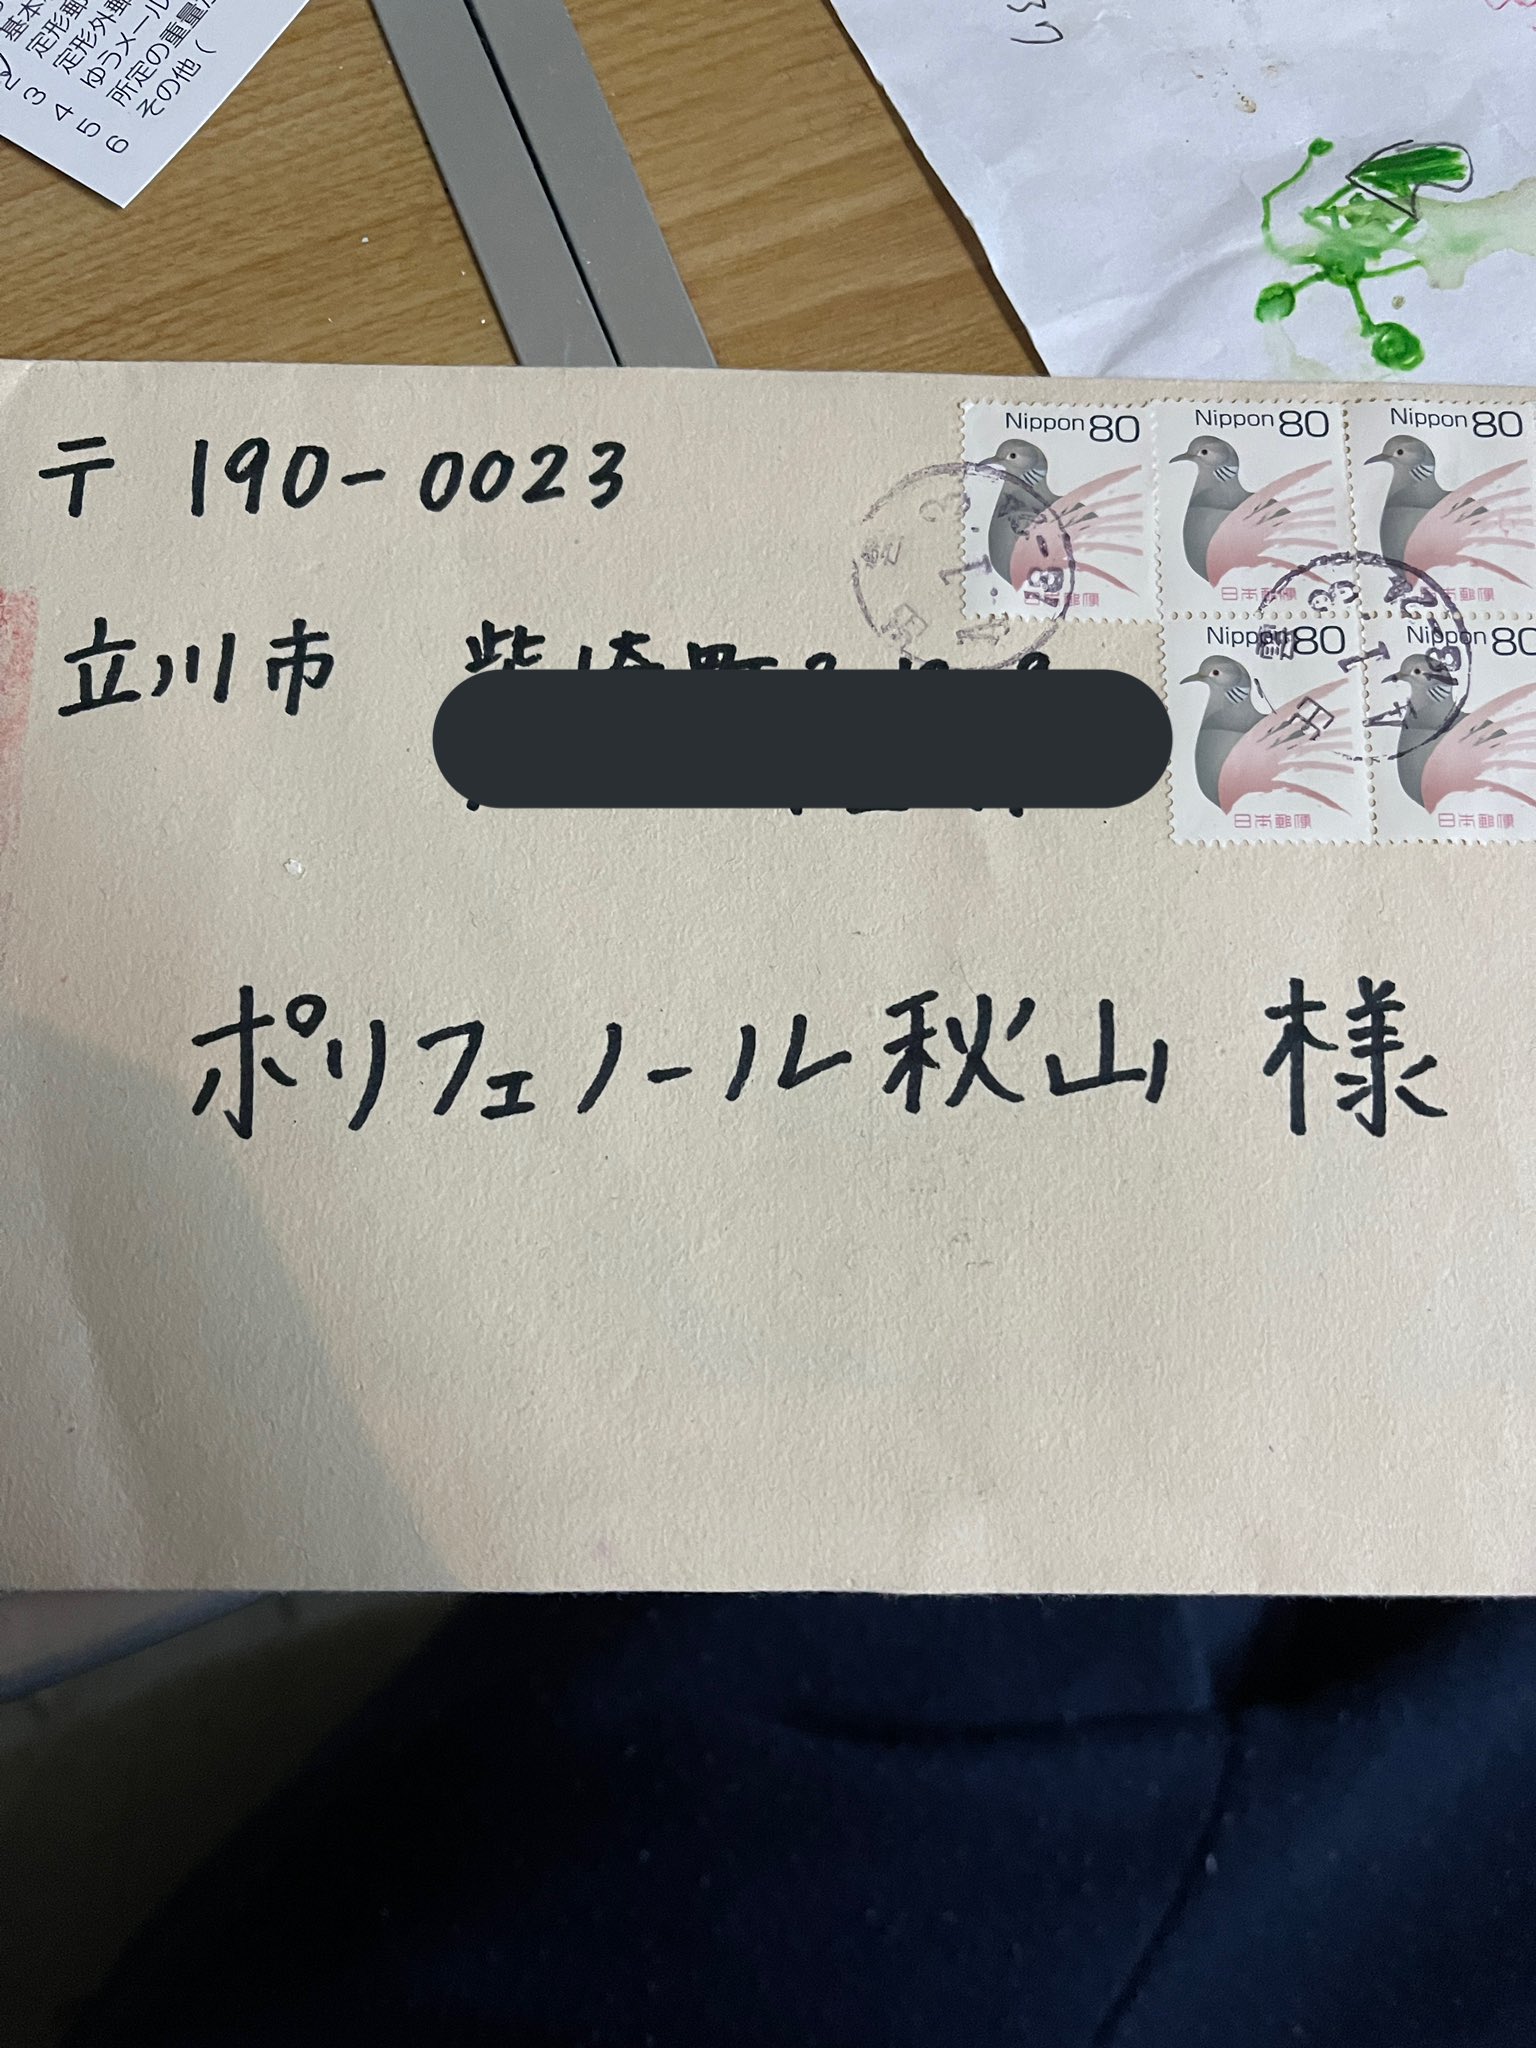 基本
2 定形郵
3 定形外郵
4 ゆうメール
5 所定の重量
6 その他(
〒 190-0023
立川市
Nippon 80
Nippon 80
Nippon 80
日本郵便
日本郵便
日本郵便
Nippon 80
Nippon 80
日本郵便
日本郵便
ポリフェノール秋山 様